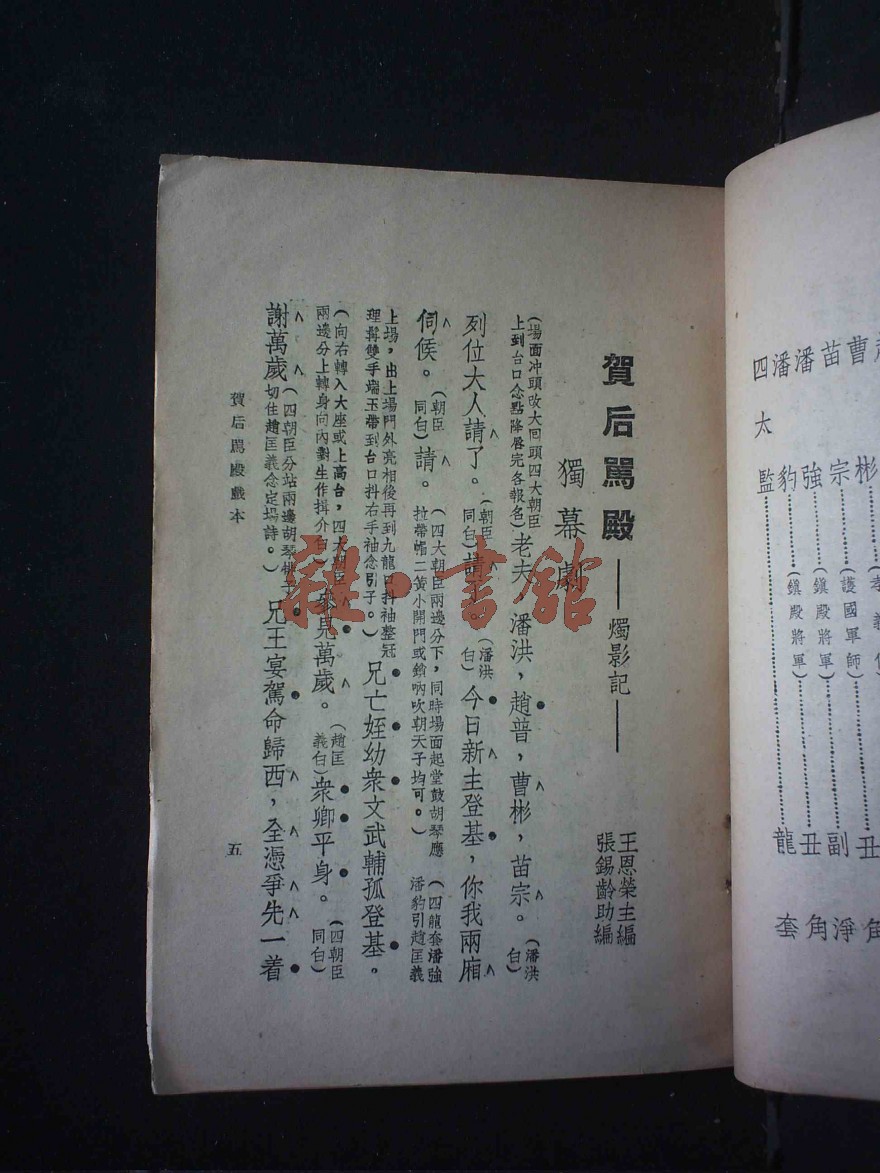 賀后罵殿——燭影記——
獨幕劇
王恩榮主編
張錫齡助編
(場面沖頭改大回頭四大朝臣上到台口念點降唇完各報名)老夫、潘洪,趙普,曹彬,苗宗。(潘洪白)
列位大人請了。(朝臣同白)請了。(潘洪白)今日新主登基,你我兩廂
伺候。(朝臣同白)請。(四大朝臣兩邊分下,同時場面起堂鼓胡琴應拉帶帽二黃小開門或鎖吶吹朝天子均可。)(四龍套潘強潘豹引趙匡義
上場,出上場門外亮相後再到九龍口抖袖整冠理髯雙手端玉帶到台口抖右手袖念引子。)兄亡姪幼衆文武輔孤登基。
(向右轉入大座或上高台,四大朝臣兩邊分上轉身向內對生作揖介白)參見萬歲。(趙匡義白)衆卿平身。(四朝臣同白)
謝萬歲(四朝臣分站兩邊胡琴桃子切住趙匡義念定場詩。)兄王宴駕命歸西,全憑爭先一着
賀后罵殿戲本
五
雜·書館
曹彬
苗宗……(護國軍師)……副淨
潘強……(鎭殿將軍)……丑角
潘豹……(鎭殿將軍)……丑
四太監……龍套